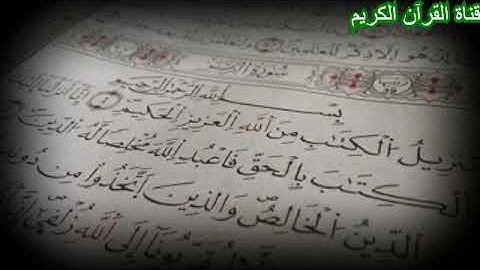 قناة القرآن الكريم
هو إلا ذكر للعلمين
سورة الزمر
بسم الله الرحمن الرحيم
تنزيل الكتب من الله العزيز الحكيم ١ إنا أنزلنا إليك
الكتب بالحق فاعبد الله مخلصا له الدين
الدين الخالص والذين اتخذوا من دونه
إلى الله زلفى